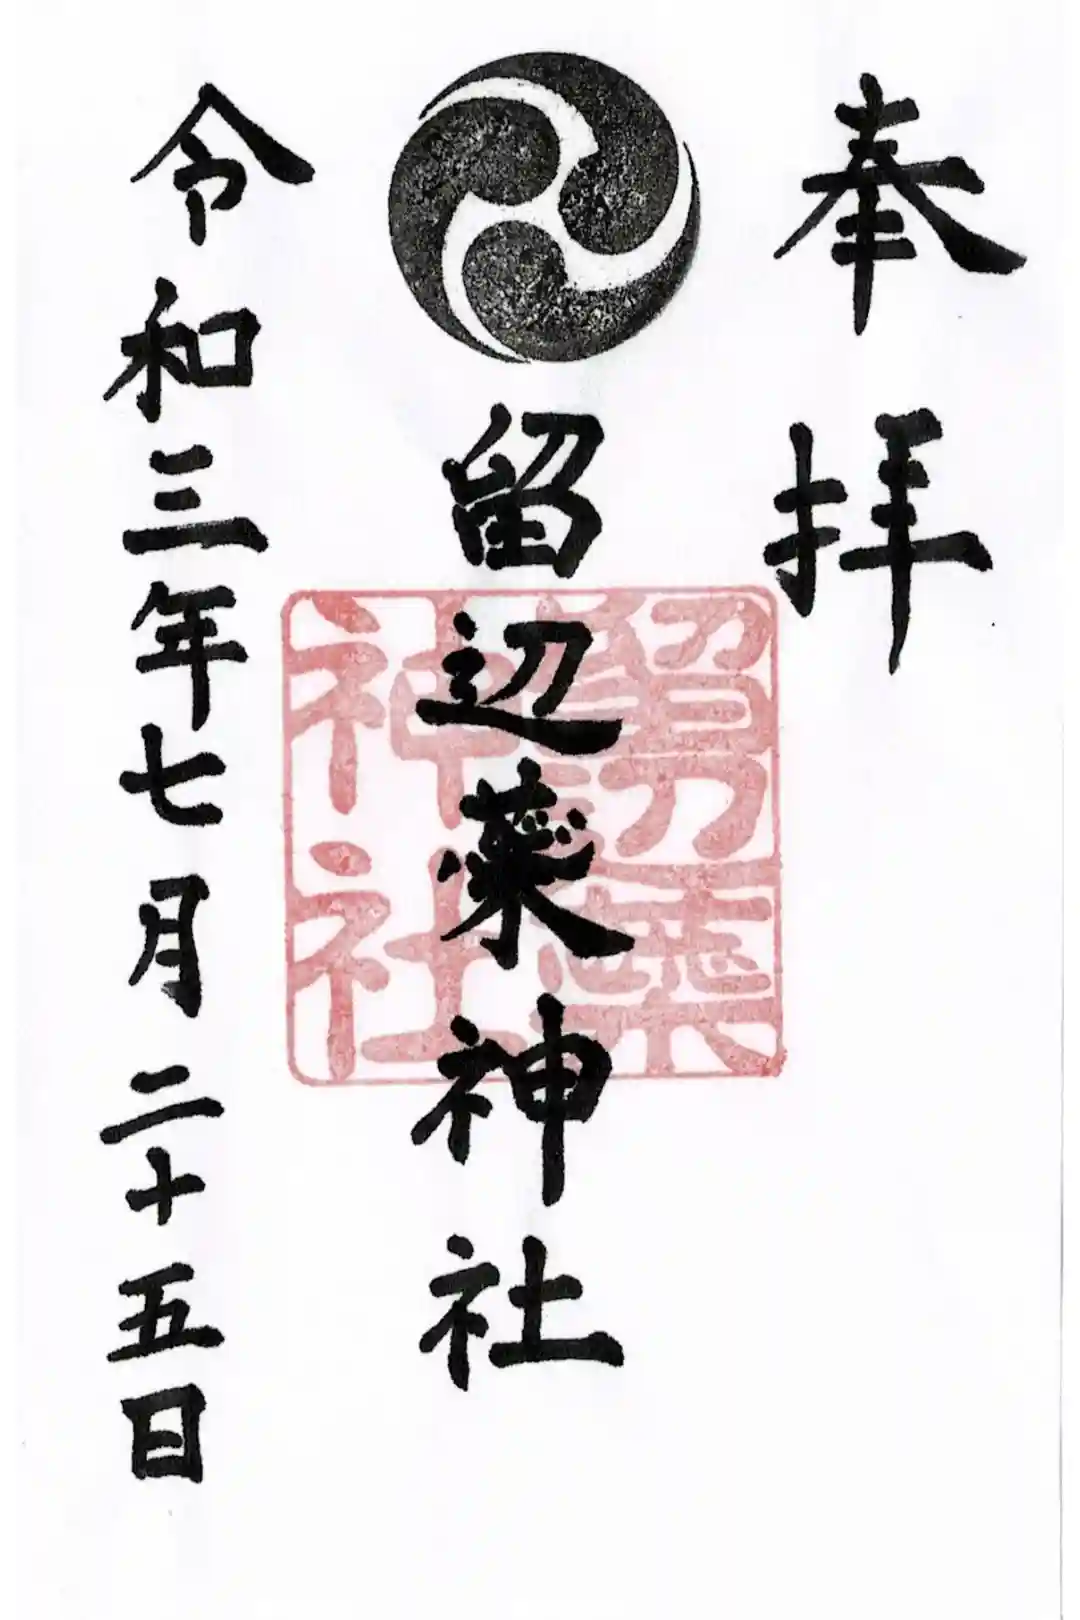 奉拝
留辺蘂神社
留辺蘂
神社
令和三年七月二十五日